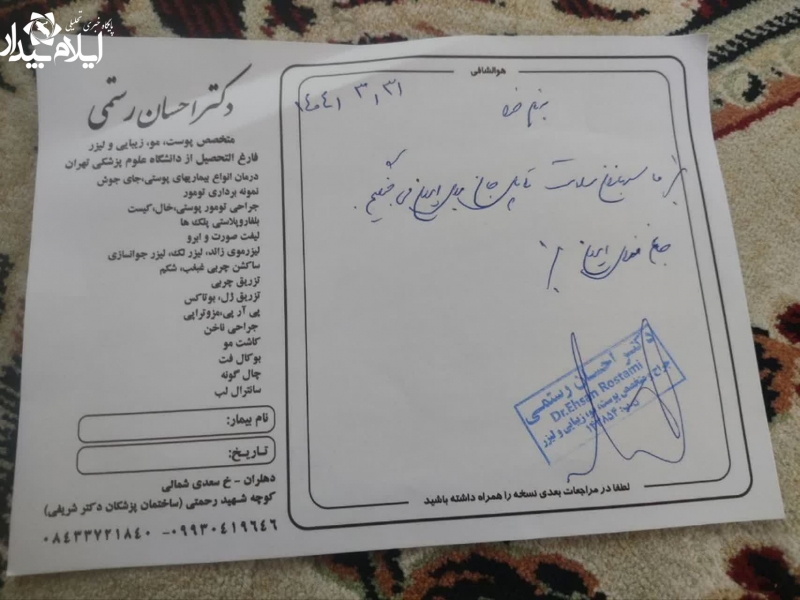 پایگاه خبری تحلیلی
ایلام بیدار
دکتر احسان رستمی
متخصص پوست، مو، زیبایی و لیزر
فارغ التحصیل از دانشگاه علوم پزشکی تهران
درمان انواع بیماریهای پوستی،جای جوش
نمونه برداری تومور
جراحی تومور پوستی،خال،کیست
بلفاروپلاستی پلک ها
لیفت صورت و ابرو
لیزرموی زائد، لیزر لک، لیزر جوانسازی
ساکشن چربی غبغب، شکم
تزریق چربی
تزریق ژل، بوتاکس
پی آر پی،مزوتراپی
جراحی ناخن
کاشت مو
بوکال فت
چال گونه
سانترال لب
نام بیمار:
تاریخ:
دهلران - خ سعدی شمالی
کوچه شهید رحمتی (ساختمان پزشکان دکتر شریفی)
۰۸۴۳۳۷۲۱۸۴۰ -۰۹۹۳۰۴۱۹۶۴۶
هوالشافی
۱۴۰۴/۳/۳۱
بنام خدا
ما سربازان سلامت تا پای جان برای ایران می جنگیم.
جانم فدای ایران
دکتر احسان رستمی
Dr.Ehsan Rostami
متخصص پوست، مو، زیبایی و لیزر
لطفا در مراجعات بعدی نسخه را همراه داشته باشید